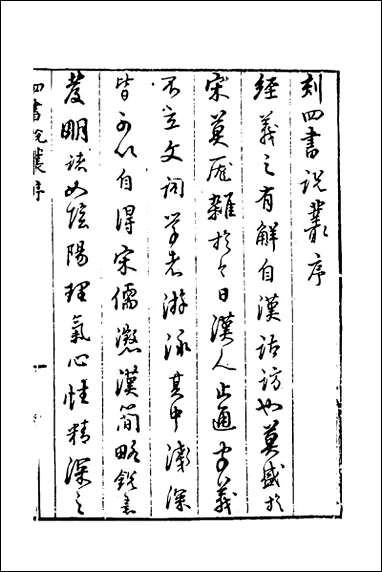 刻四書説叢序
經義之有解自漢詁訪也莫盛於
宋莫厖雜於今日漢人止通字義
不立文詞學者游泳其中淺深
皆可以自得宋儒懲漢簡略銳意
發明諸如陰陽理氣心性精深之
四書説叢序
一